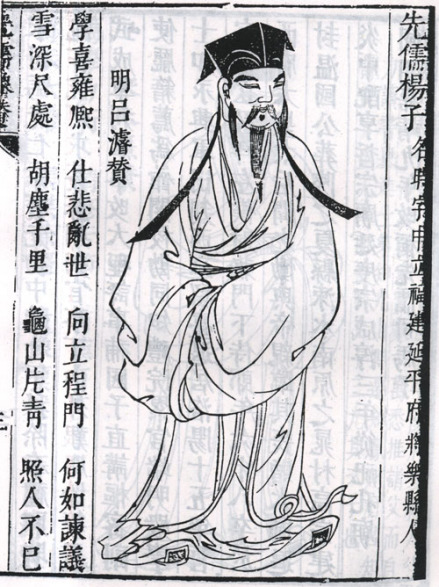 先儒楊子名時字中立福建延平府將樂縣人
明呂濬贊
學喜雍熙 仕悲亂世 向立程門 何如諫議
雪深尺處 胡塵千里 龜山片青 照人不已